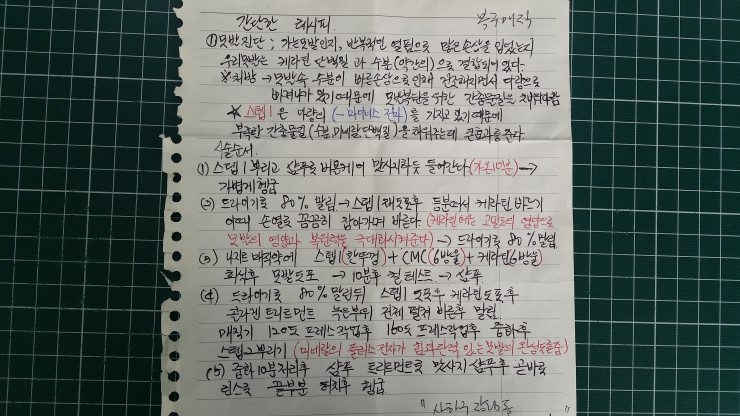 간단한 레시피. 복구매직
① 모발진단 ; 가는모발인지, 반복적인 열펌으로 많은손상을 입었는지
우리모발은 케라틴 단백질과 수분(약간의)으로 결합되어 있다.
※처방 → 모발속 수분이 빠른손상으로 인해 건조해지면서 다량으로
빠져나가 있기 때문에 모발복원을 위한 간충물질을
※ 스텝1은 다량의 (-마이너스 전자)를 가지고 있기때문에
부족한 간충물질(수분,미네랄,단백질)을 채워주는데 큰효과를 준다
시술순서.
(1) 스텝1 뿌리고 샴푸로 버블게이 맛사지하듯 들어간다 (자온10분) →
가볍게 헹굼
(2) 드라이기로 80% 말림 → 스텝1 재도포후 등분해서 케라틴 바르기
이때 손열로 꼼꼼히 잡아가며 바른다. (케라틴에는 고밀도의 영양으로
모발의 영양과 복원력을 극대화시켜준다) → 드라이기로 80% 말림
(3) 나시드 매직약에 스텝1(한뚜껑) + CMC(6방울) + 케라틴(6방울)
희석후 모발도포 → 10분후 컬 테스트 → 샴푸
(4) 드라이기로 80% 말린뒤 스텝1 도포후 케라틴도포후
콜라겐 트리트먼트 묽은부위 전체 펼쳐 바른후 말림.
매직기 120도 프레스작업후 160도 프레스작업후 중화후
스텝2 뿌리기 (미네랄의 플러스전자가 힘과탄력 있는모발의 완성도를줌)
(5) 중화 10분처리후 샴푸 트리트먼트로 맛사지 샴푸후 곧바로
린스로 끝부분 처치후 헹굼
" 사하구